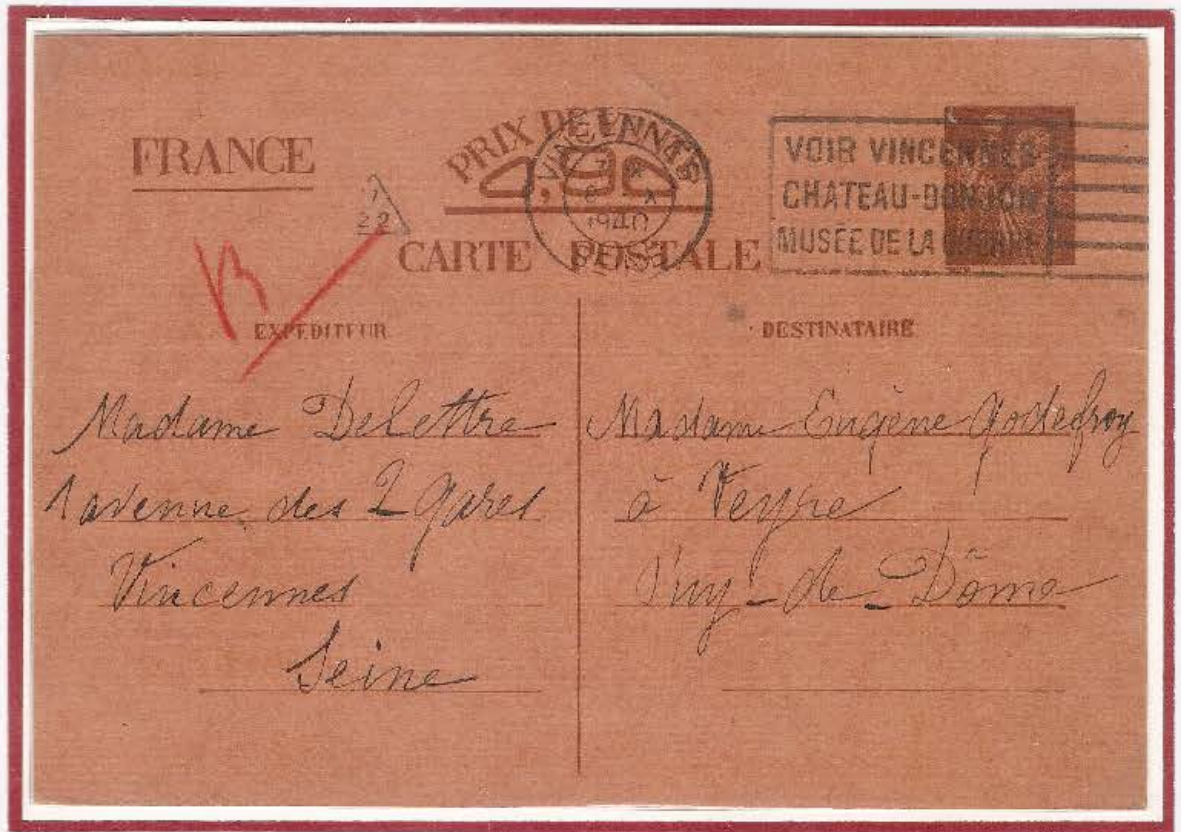 FRANCE
PRIX DE VENTE
0F90
VINCENNES
1940
SEINE
VOIR VINCENNES
CHATEAU-DONJON
MUSÉE DE LA GUERRE
22
CARTE POSTALE
EXPÉDITEUR
Madame Delettre
1 avenue des 2 gares
Vincennes
Seine
DESTINATAIRE
Madame Eugène Godefroy
à Veyre
Puy-de-Dôme